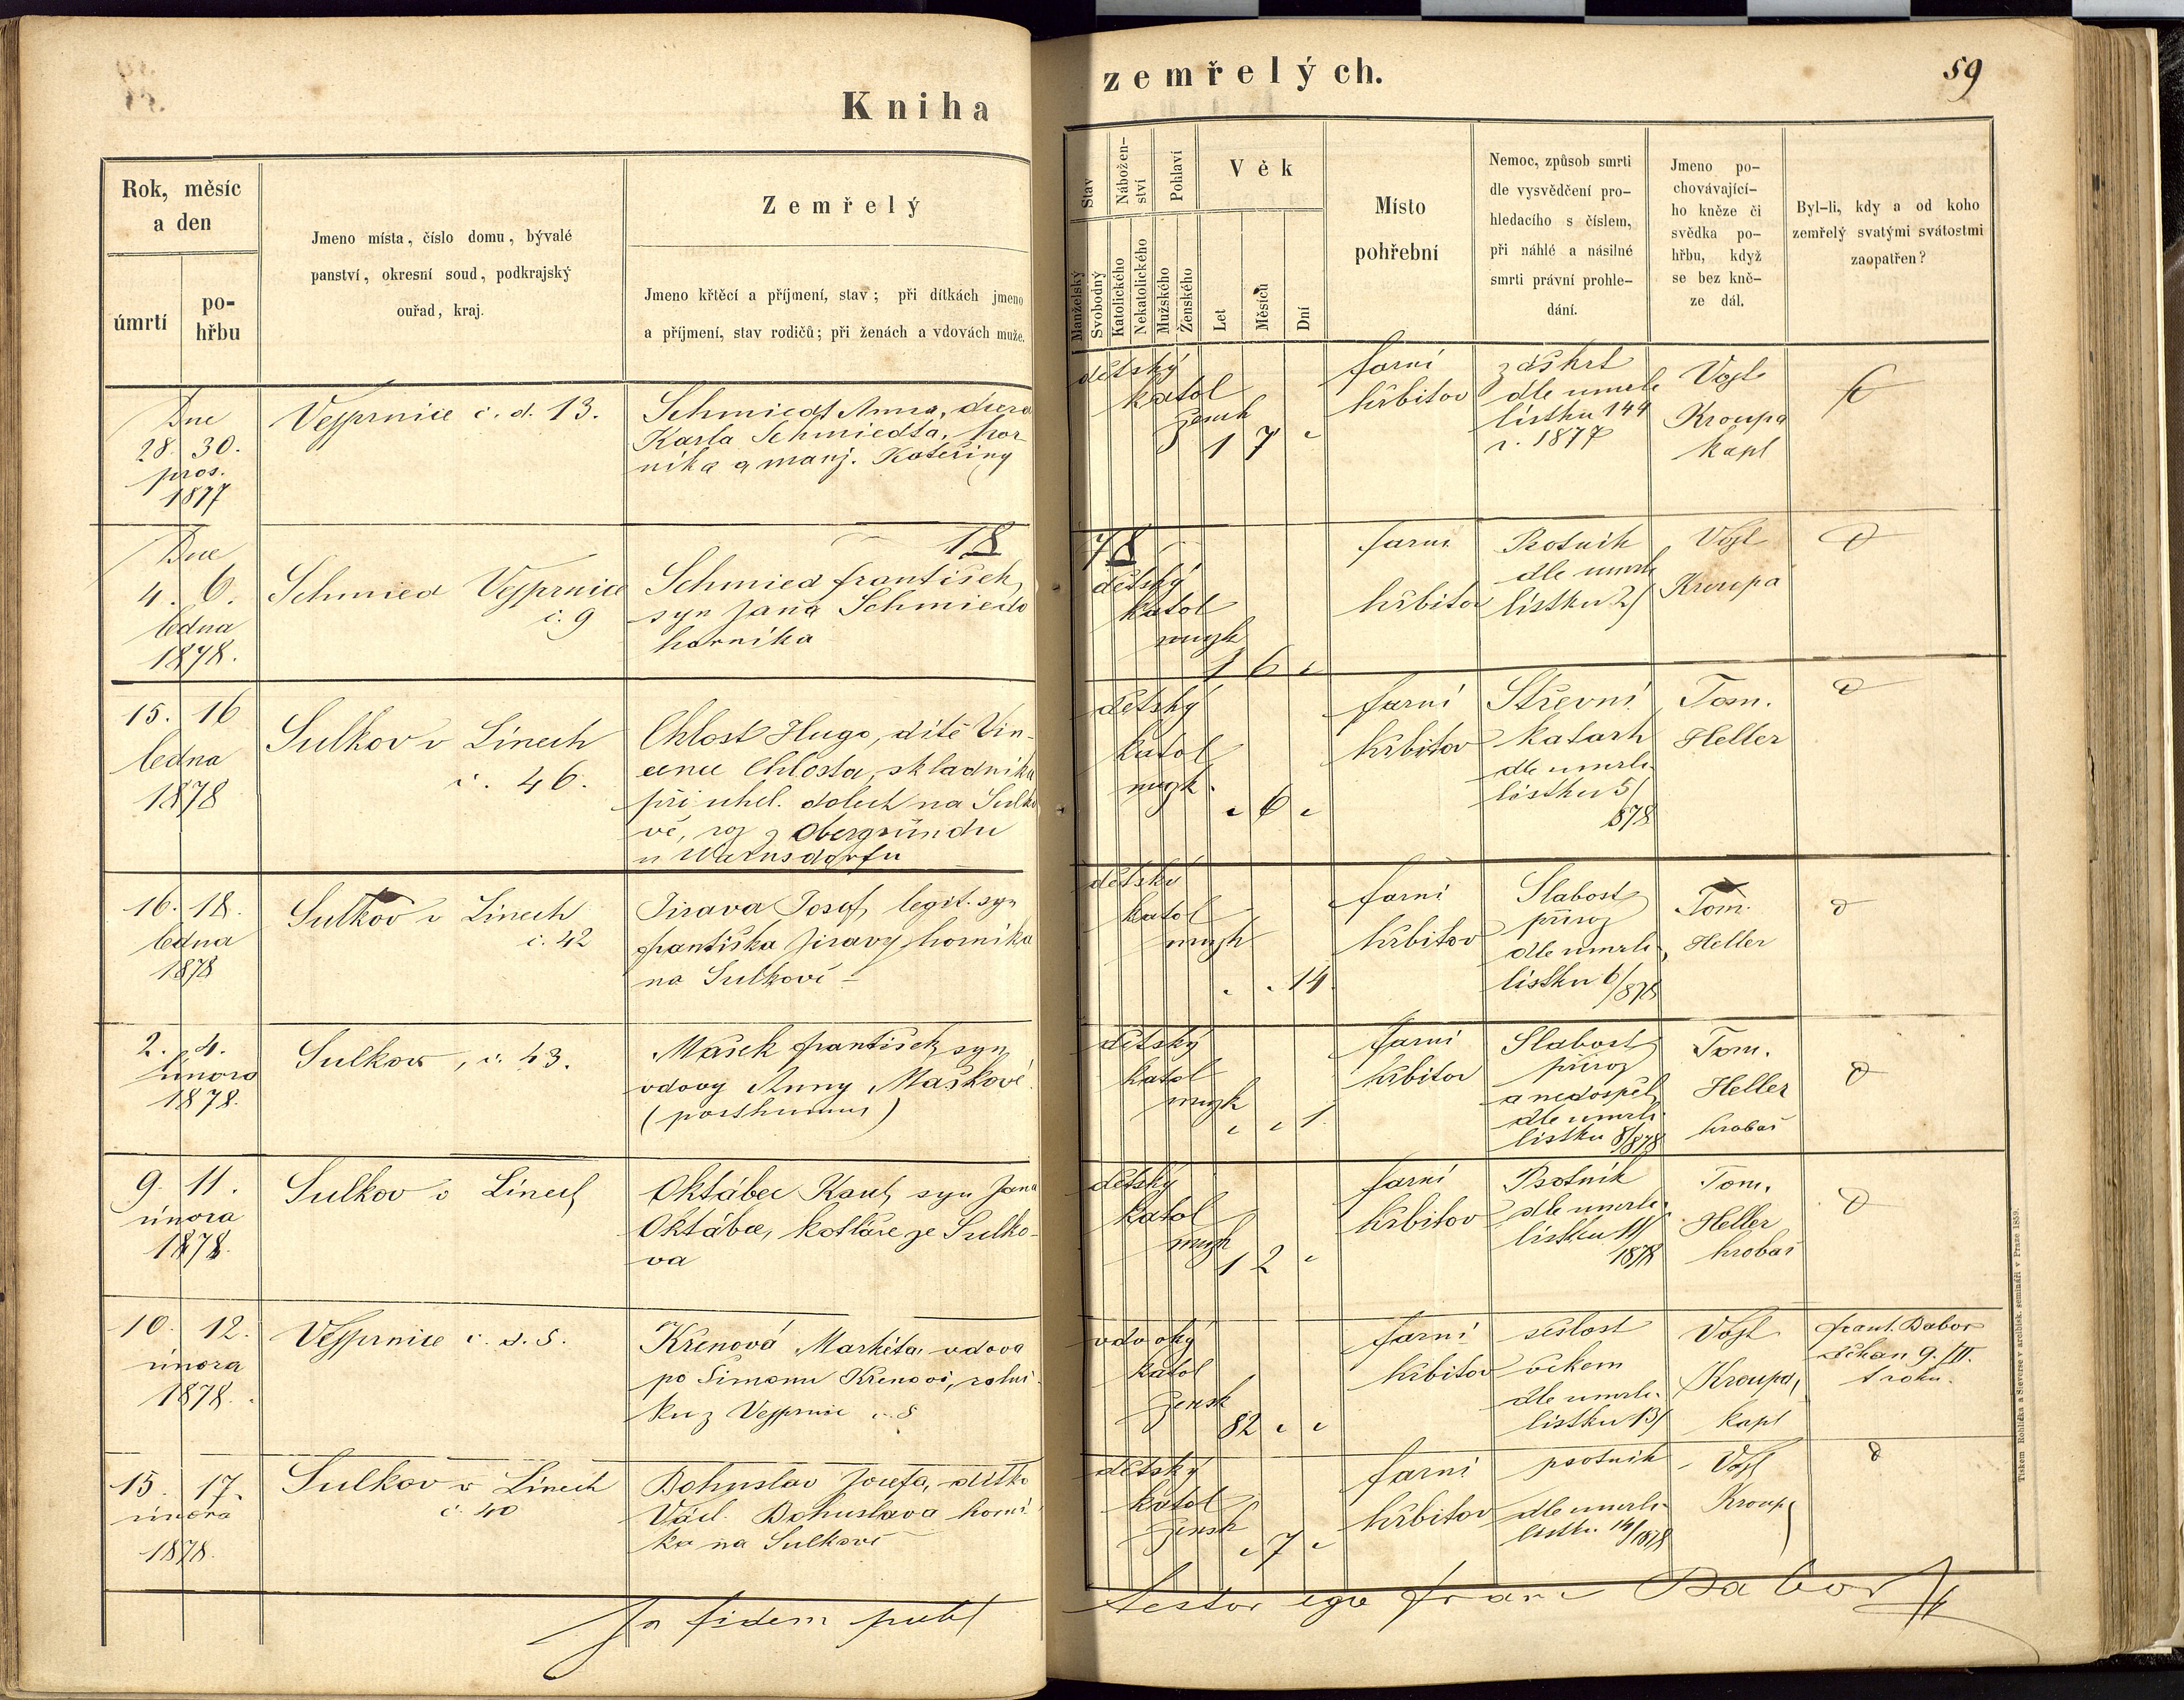 Kniha
zemřelých.
59
Rok, měsíc
a den
úmrtí
po-
hřbu
Jmeno místa, číslo domu, bývalé
panství, okresní soud, podkrajský
ouřad, kraj.
Zemřelý
Jmeno křtěcí a příjmení, stav; při dítkách jmeno
a příjmení, stav rodičů; při ženách a vdovách muže.
Stav
Manželský
Svobodný
Nábožen-
ství
Katolického
Nekatolického
Pohlaví
Mužského
Ženského
Věk
Let
Měsíců
Dní
Místo
pohřební
Nemoc, způsob smrti
dle vysvědčení pro-
hledacího s číslem,
při náhlé a násilné
smrti právní prohle-
dání.
Jmeno po-
chovávající-
ho kněze či
svědka po-
hřbu, když
se bez kně-
ze dál.
Byl-li, kdy a od koho
zemřelý svatými svátostmi
zaopatřen?
Dne
28. 30.
pros.
1877
Vejprnice č. d. 13.
Schmiedt Anna, dcera
Karla Schmiedta, hor-
níka a manž. Kateřiny
dětský
katol
žensk
1 7 "
farní
hřbitov
záškrt
dle umrlč
lístku 144
r. 1877
Vojt.
Kroupa
kapl
1878
Dne
4. 6.
ledna
1878.
Schmied Vejprnice
č. 9
Schmied František,
syn Jana Schmieda
horníka
dětský
katol
mužk
1 6 "
farní
hřbitov
Psotník
dle umrlč
lístku 2/
Vojt
Kroupa
15. 16
ledna
1878
Sulkov v Línech
č. 46.
Chlost Hugo, dítě Vin-
cence Chlosta, skladníka
při uhel. dolech na Sulko
vě, roz z Obergründu
u Warnsdorfu
dětský
katol
mužk.
" 6 "
farní
hřbitov
Střevní
katarh
dle umrlč.
lístku 5/
878
Tom.
Heller
16. 18.
ledna
1878
Sulkov v Línech
č. 42
Jirava Josef, legit. syn
Františka Jiravy, horníka
na Sulkově
dětský
katol
mužk
" " 14
farní
hřbitov
Slabost
přiroz
dle umrlč.
lístku 6/878
Tom.
Heller
2. 4.
února
1878.
Sulkov, č. 43.
Mašek František, syn
vdovy Anny Maškové
(posthumus)
dětský
katol
mužk
" " 1.
farní
hřbitov
Slabost
přiroz
a nedospěl
dle umrlč.
lístku 8/878
Tom.
Heller
hrobař
9. 11.
února
1878.
Sulkov v Línech
Oktábec Karel, syn Jana
Oktábce, kotláře ze Sulko-
va
dětský
katol
mužk
1 2 "
farní
hřbitov
Psotník
dle umrlč.
lístku 11/
1878
Tom.
Heller
hrobař
10. 12.
února
1878.
Vejprnice č. d. 8.
Křenová Markéta, vdova
po Šimonu Křenovi, rolní-
ku z Vejprnic č. 8
vdovský
katol
žensk
82 " "
farní
hřbitov
sešlost
věkem
dle umrlč.
lístku 13/
Vojt
Kroupa,
kapl
Frant. Babor
děkan 9./II.
t. roku.
15. 17.
února
1878.
Sulkov v Línech
č. 40
Bohuslav Josefa, dítko
Václ. Bohuslava horní-
ka na Sulkově
dětský
katol
žensk
" 7 "
farní
hřbitov
psotník
dle umrlč.
lístku 14/1878
Vojt
Kroupa
In fidem publ
testor ego Franc Babor
Tiskem Rohlíčka a Sieverse v arcibisk. semináři v Praze 1859.